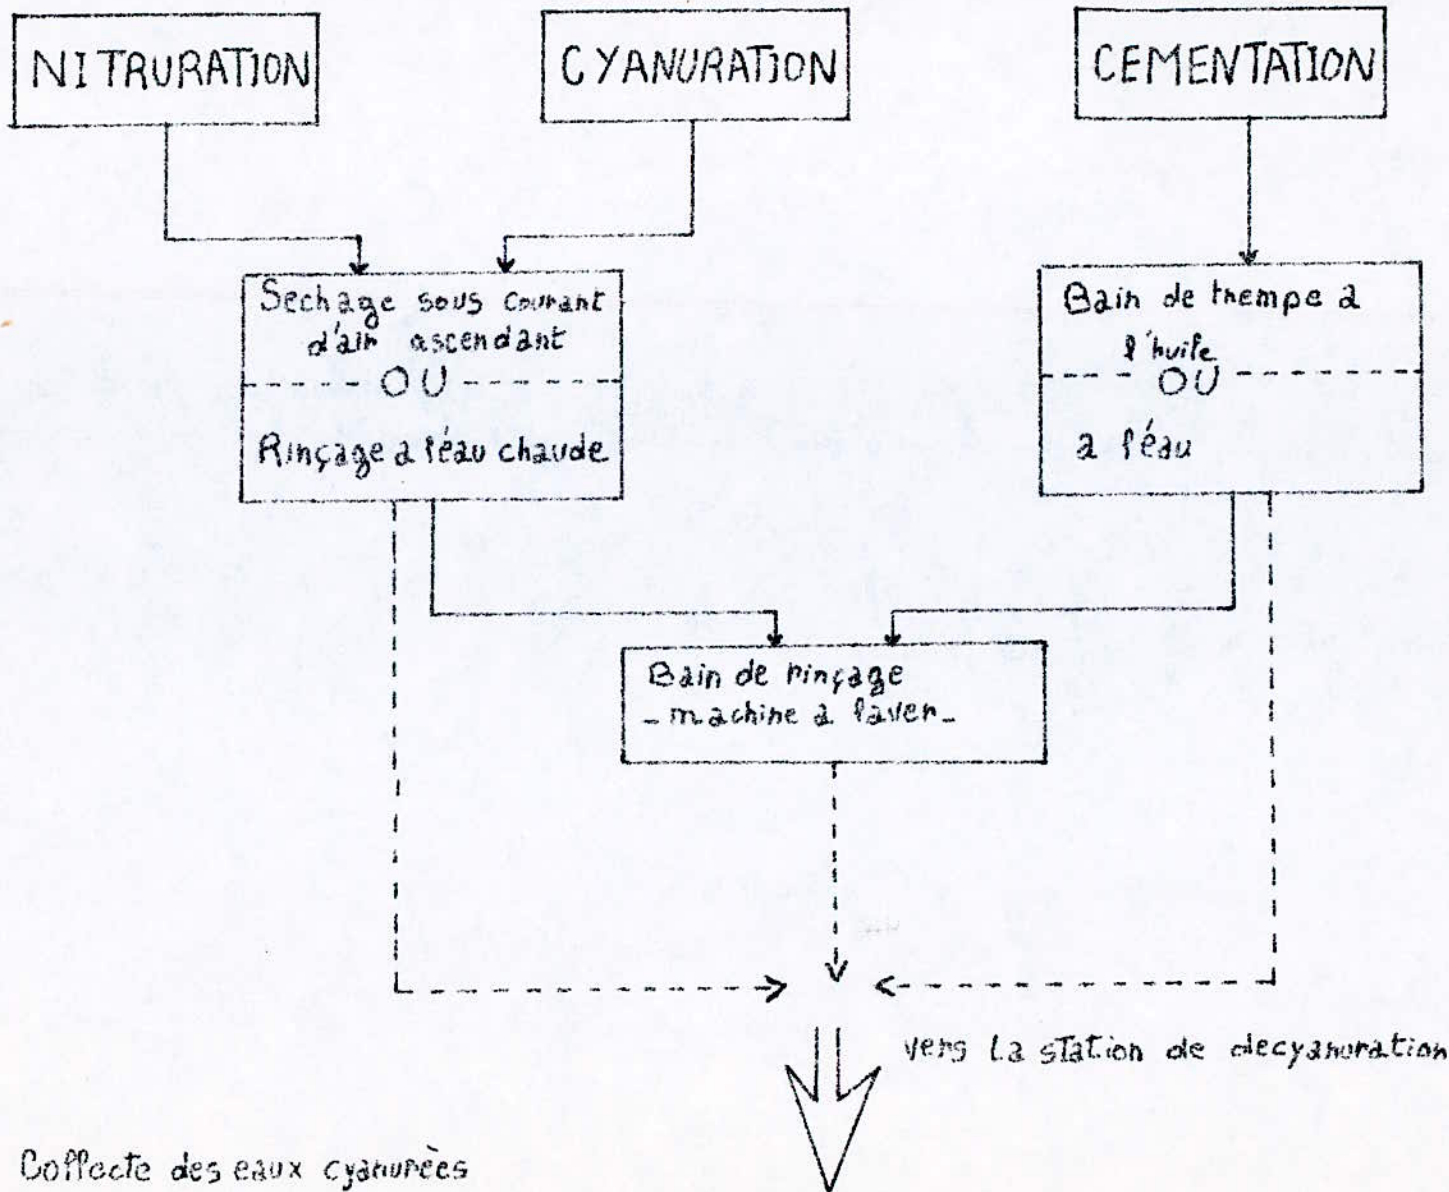 NITRURATION
CYANURATION
CEMENTATION
Sechage sous courant
d'air ascendant
OU
Rinçage a l'éau chaude
Bain de trempe a
l'huile
OU
a l'éau
Bain de rinçage
_ machine a laver_
vers la station de decyanuration
Collecte des eaux cyanurèes